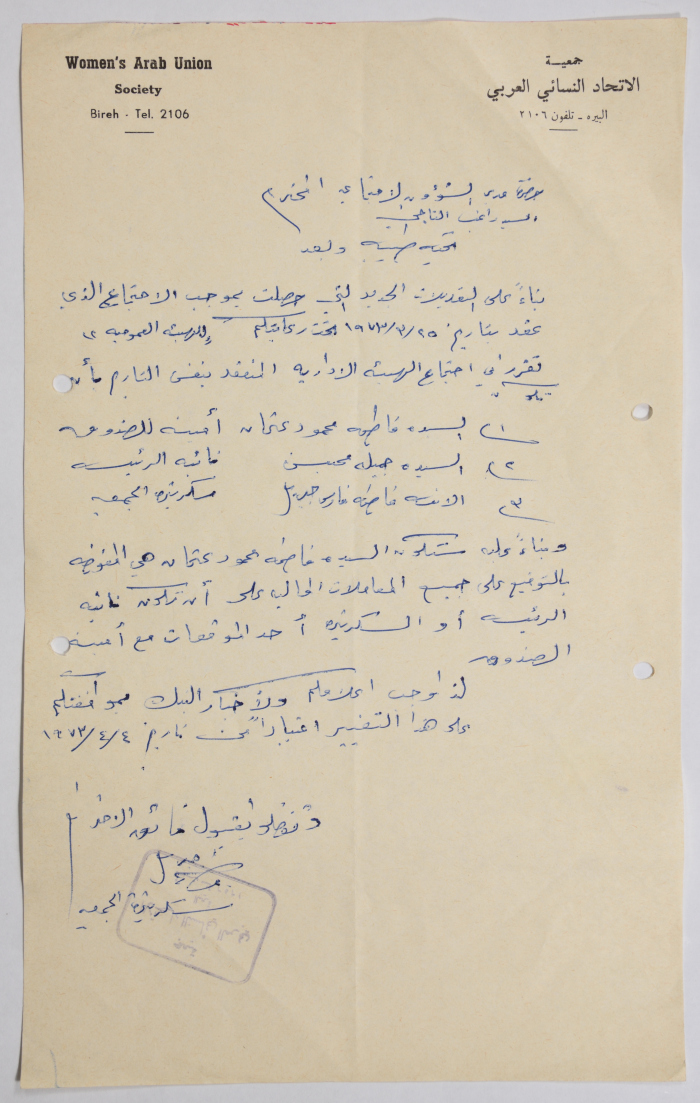 Women's Arab Union
Society
Bireh - Tel. 2106
جمعيـة
الاتحاد النسائي العربي
البيره ـ تلفون ٢١٠٦
حضرة مدير الشؤون الاجتماعي المحترم
السيد راغب
تحيه طيبه وبعد
بناءً على التعديلات الجديده التي حصلت بموجب الاجتماع الذي
عقد بتاريخ ١٩٧٣/٣/٢٥ تحت رعايتكم للهيئة العموميه
تقرر في اجتماع الهيئة الاداريه المنعقد بنفس التاريخ بأن
تكون
١) السيده فاطمه محمود عثمان أمينة الصندوق
٢) السيده جميله محيسن نائبه الرئيسه
٣) الانسه فاطمه فارس سكرتيرة الجمعيه
وبناءً عليه ستكون السيده فاطمه محمود عثمان هي المفوضه
بالتوقيع على جميع المعاملات الماليه على أن تكون نائبه
الرئيسه أو السكرتيره أحد الموقعات مع أمينة
الصندوق
لذا وجب اعلامكم ولأخبار البنك بموافقتكم
على هذا التغيير اعتباراً من تاريخ ١٩٧٣/٤/٤
وتفضلوا بقبول فائق الاحترام
سكرتيرة الجمعيه